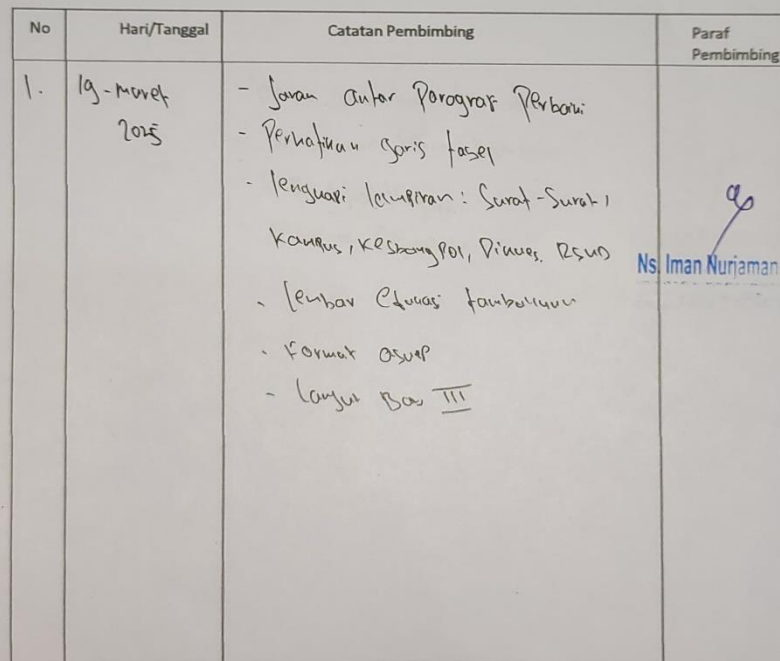 No Hari/Tanggal Catatan Pembimbing Paraf Pembimbing
1. 19-Maret 2025
- Jaran antar Paragraf Perbaiki
- Perhatikan Garis tabel
- lengkapi lampiran : Surat-Surat,
Kampus, Kesbangpol, Dinkes, RSUD
- lembar Edukasi tambahkan
- Format askep
- Lanjut Bab III
Ns. Iman Nurjaman